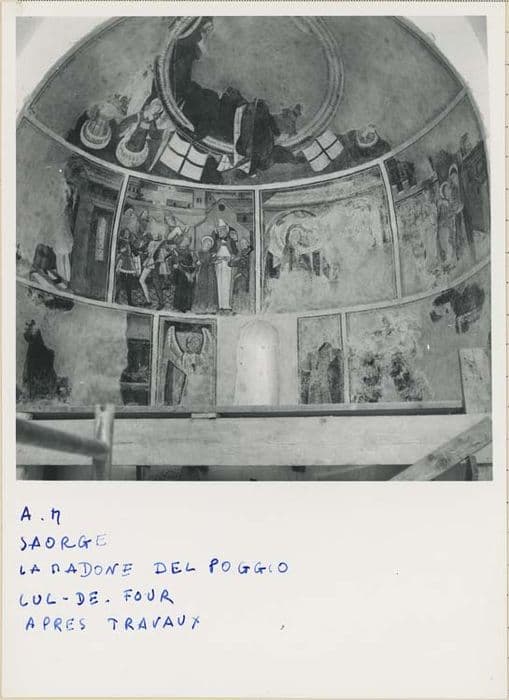 A.M
SAORGE
LA MADONE DEL POGGIO
CUL-DE-FOUR
APRES TRAVAUX